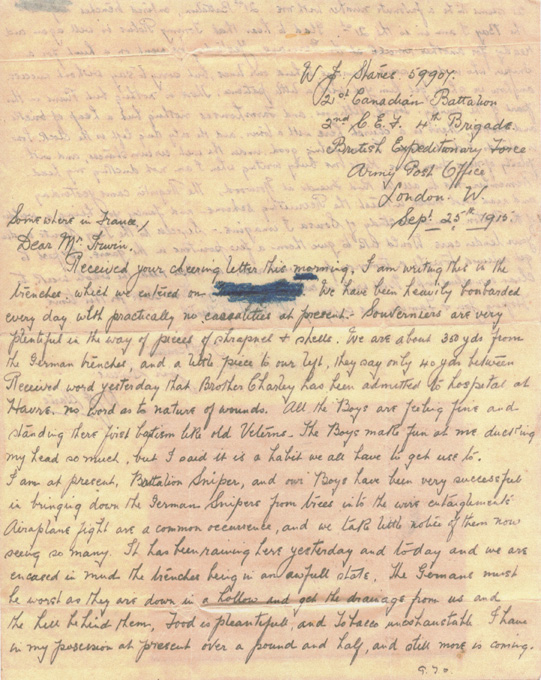 W. J. Stares. 59907.
21st Canadian Battalion
2nd C.E.F. 4th Brigade.
British Expeditionary Force
Army Post Office
London. W.
Sept. 25th 1915.
Somewhere in France,
Dear Mr. Irwin.
Received your cheering letter this morning. I am writing this in the
trenches. which we entered on We have been heavily bombarded
every day with practically no casoalities at present. - Souverniers are very
plentiful in the way of pieces of shrapnel & shells. We are about 350 yds from
the German trenches, and a little piece to our left, they say only 40 yds between
Received word yesterday that Brother Charley has been admitted to hospital at
Havre. no word as to nature of wounds. All the Boys are feeling fine and
standing there first baptism like old Veterns - The Boys make fun at me ducking
my head so much, but I said it is a habit we all have to get use to.
I am at present, Battalion Sniper, and our Boys have been very successful
in bringing down the German Snipers from trees into the wire entanglements
Airaplane fight are a common occurence, and we take little notice of them now
seeing so many. It has been raining here yesterday and today and we are
encased in mud the trenches being in an awfull state. The Germans must
be worst as they are down in a hollow and get the drainage from us and
the hill behind them, Food is pleantifull, and Tobacco unexhaustable I have
in my posession at present over a pound and half, and still more is coming.